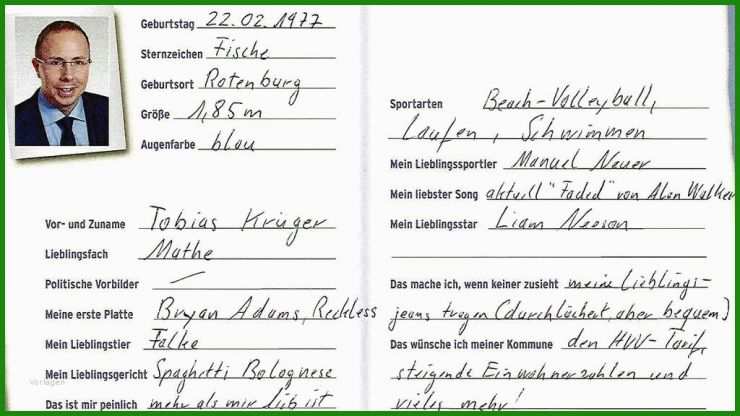 Geburtstag 22.02.1977
Sternzeichen Fische
Geburtsort Rotenburg
Größe 1,85m
Augenfarbe blau
Vor- und Zuname Tobias Krüger
Lieblingsfach Mathe
Politische Vorbilder —
Meine erste Platte Bryan Adams, Reckless
Mein Lieblingstier Falke
Mein Lieblingsgericht Spaghetti Bolognese
Das ist mir peinlich mehr als mir lieb ist
Vorlagen
Sportarten Beach-Volleyball,
Laufen, Schwimmen
Mein Lieblingssportler Manuel Neuer
Mein liebster Song aktuell "Faded" von Alan Walker
Mein Lieblingsstar Liam Neeson
Das mache ich, wenn keiner zusieht meine Lieblings-
jeans tragen (durchlöchert, aber bequem)
Das wünsche ich meiner Kommune den HVV-Tarif,
steigende Einwohnerzahlen und
vieles mehr!